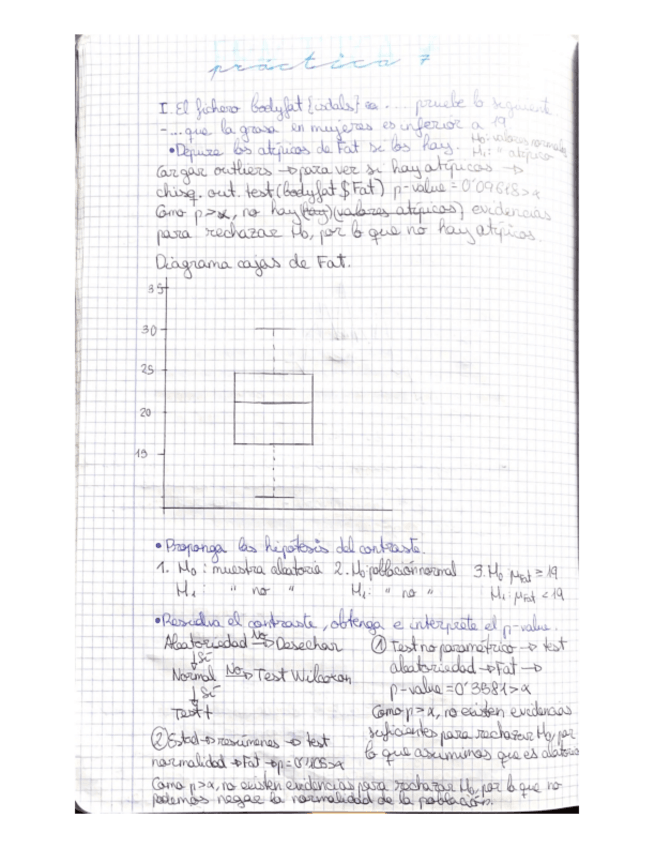 práctica 7
I. El fichero bodyfat {isdals} es ... pruebe lo siguiente
-...que la grasa en mujeres es inferior a 19
• Depure los atípicos de Fat si los hay. H₀: valores normales
H₁: " atípico
Cargar outliers → para ver si hay atípicos →
chisq. out. test (bodyfat $ Fat) p-value = 0'09618 > α
Como p > α, no hay (hay) (valores atípicos) evidencias
para rechazar H₀, por lo que no hay atípicos.
Diagrama cajas de Fat.
35
30
25
20
15
• Proponga las hipótesis del contraste.
1. H₀: muestra aleatoria 2. H₀ población normal 3. H₀ μFat ≥ 19
H₁: " no " H₁: " no " H₁: μFat < 19
• Resuelva el contraste, obtenga e interprete el p-value.
Aleatoriedad No→ Desechar
↓ Sí
Normal No→ Test Wilcoxon
↓ Sí
Test t
① Test no paramétrico → test
aleatoriedad → Fat →
p-value = 0'3581 > α
Como p > α, no existen evidencias
suficientes para rechazar H₀, por
lo que asumimos que es aleatoria
② Estad → resúmenes → test
normalidad → Fat → p = > α
Como p > α, no existen evidencias para rechazar H₀, por lo que no
podemos negar la normalidad de la población.